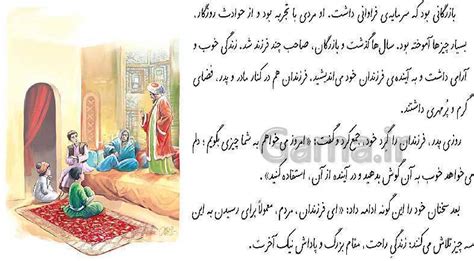 بازرگانی بود که سرمایه‌ی فراوانی داشت. او مردی با تجربه بود و از حوادث روزگار،
بسیار چیزها آموخته بود. سال‌ها گذشت و بازرگان، صاحب چند فرزند شد. زندگی خوب و
آرامی داشت و به آینده‌ی فرزندان خود می‌اندیشید. فرزندان هم در کنار مادر و پدر، فضای
گرم و پُرمهری داشتند.
روزی پدر، فرزندان را گرد خود، جمع کرد و گفت: «امروز می‌خواهم به شما چیزی بگویم؛ دلم
می‌خواهد خوب به آن گوش بدهید و در آینده از آن، استفاده کنید».
بعد سخنان خود را این گونه ادامه داد: «ای فرزندان، مردم، معمولاً برای رسیدن به این
سه چیز تلاش می‌کنند: زندگیِ راحت، مقام بزرگ و پاداش نیک آخرت.
Gama.ir